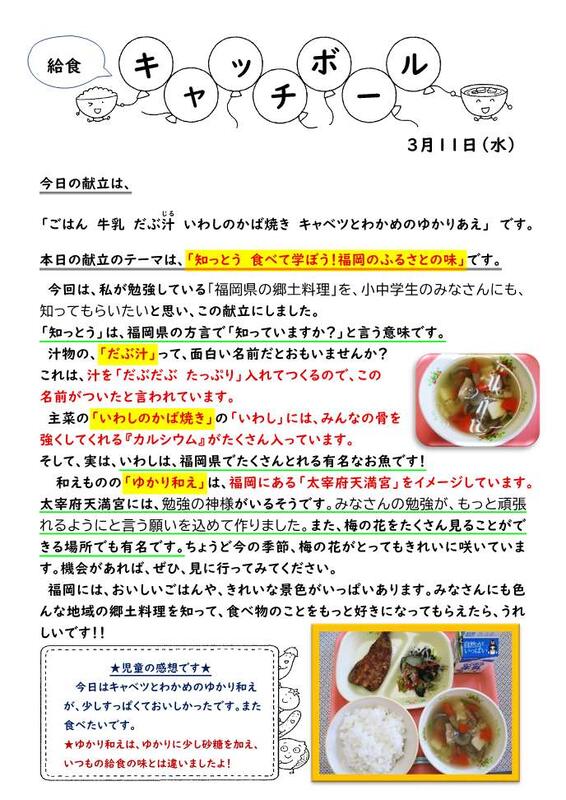 給食
キャッチボール
3月11日(水)
今日の献立は、
じる
「ごはん 牛乳 だぶ汁 いわしのかば焼き キャベツとわかめのゆかりあえ」 です。
本日の献立のテーマは、「知っとう 食べて学ぼう!福岡のふるさとの味」です。
今回は、私が勉強している「福岡県の郷土料理」を、小中学生のみなさんにも、
知ってもらいたいと思い、この献立にしました。
「知っとう」は、福岡県の方言で「知っていますか?」と言う意味です。
汁物の、「だぶ汁」って、面白い名前だとおもいませんか?
これは、汁を「だぶだぶ たっぷり」入れてつくるので、この
名前がついたと言われています。
主菜の「いわしのかば焼き」の「いわし」には、みんなの骨を
強くしてくれる『カルシウム』がたくさん入っています。
そして、実は、いわしは、福岡県でたくさんとれる有名なお魚です!
和えものの「ゆかり和え」は、福岡にある「太宰府天満宮」をイメージしています。
太宰府天満宮には、勉強の神様がいるそうです。みなさんの勉強が、もっと頑張
れるようにと言う願いを込めて作りました。また、梅の花をたくさん見ることがで
きる場所でも有名です。ちょうど今の季節、梅の花がとってもきれいに咲いていま
す。機会があれば、ぜひ、見に行ってみてください。
福岡には、おいしいごはんや、きれいな景色がいっぱいあります。みなさんにも色
んな地域の郷土料理を知って、食べ物のことをもっと好きになってもらえたら、うれ
しいです!!
★児童の感想です★
今日はキャベツとわかめのゆかり和え
が、少しすっぱくておいしかったです。また
食べたいです。
★ゆかり和えは、ゆかりに少し砂糖を加え、
いつもの給食の味とは違いましたよ!
自然が
いっぱい